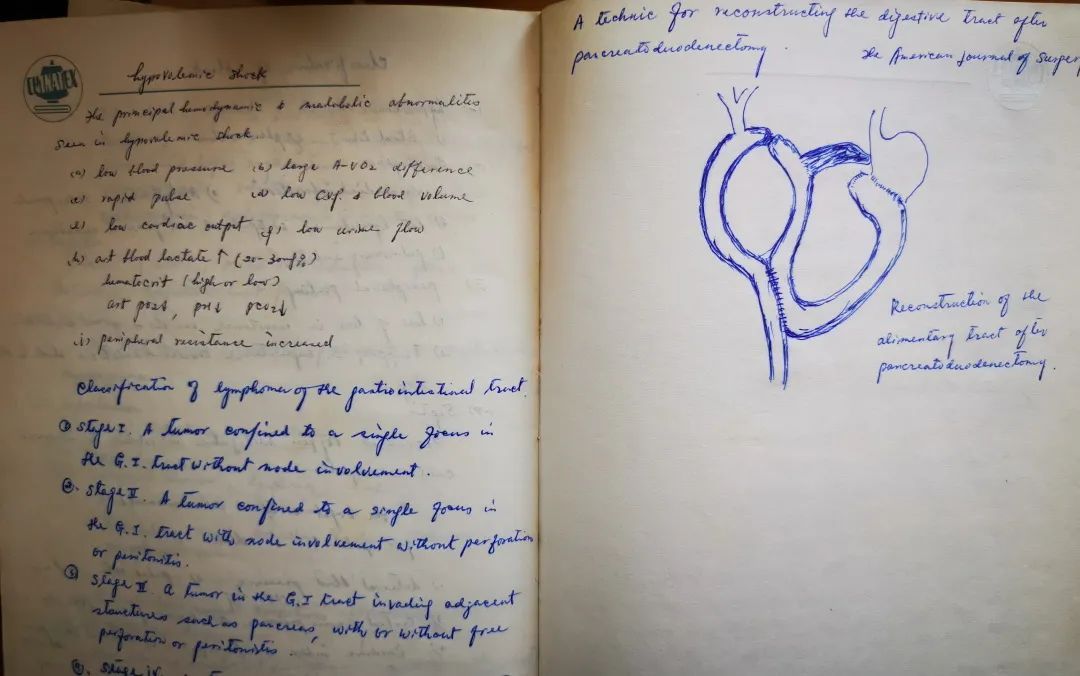 hypovolemic shock
The principal hemodynamic & metabolic abnormalities
seen in hypovolemic shock.
(a) low blood pressure (b) large A-VO₂ difference
(c) rapid pulse (d) low CVP. & blood volume
(e) low cardiac output (g) low urine flow
(h) art blood lactate ↑ (20-30mg%)
hematocrit (high or low)
art po2↓, pH↓ pco2↓
(i) peripheral resistance increased
Classification of lymphomer of the gastrointestinal tract.
① Stage I. A tumor confined to a single focus in
the G.I. tract without node involvement.
②. Stage II. A tumor confined to a single focus in
the G.I. tract with node involvement without perforation
or peritonitis.
③ Stage II A tumor in the G.I tract invading adjacent
structures such as pancreas, with or without free
perforation or peritonitis.
④. Stage IV.
A technic for reconstructing the digestive tract after
pancreatoduodenectomy. The American Journal of Surgery
Reconstruction of the
alimentary tract after
pancreatoduodenectomy.